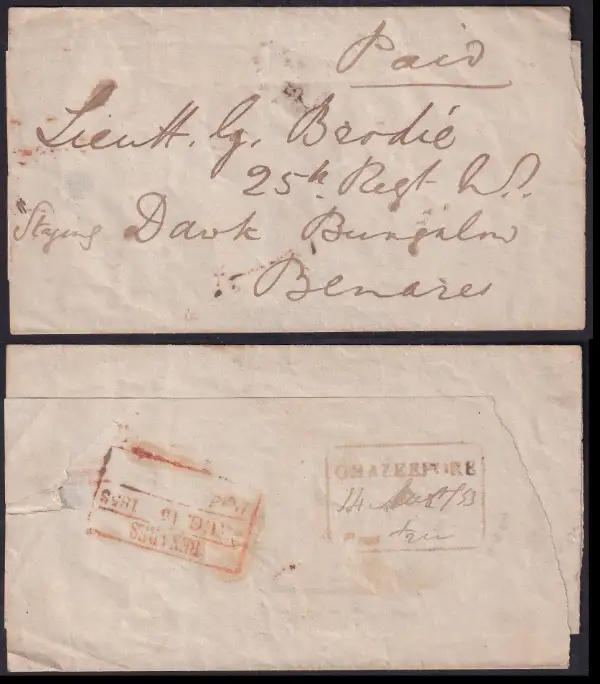 Paid
Lieutt. G. Brodie
25th Regt N.I.
Staging Dawk Bungalow
Benares
GHAZEEPORE
14 /53
BENARES
AUG. 15 1853
Paid